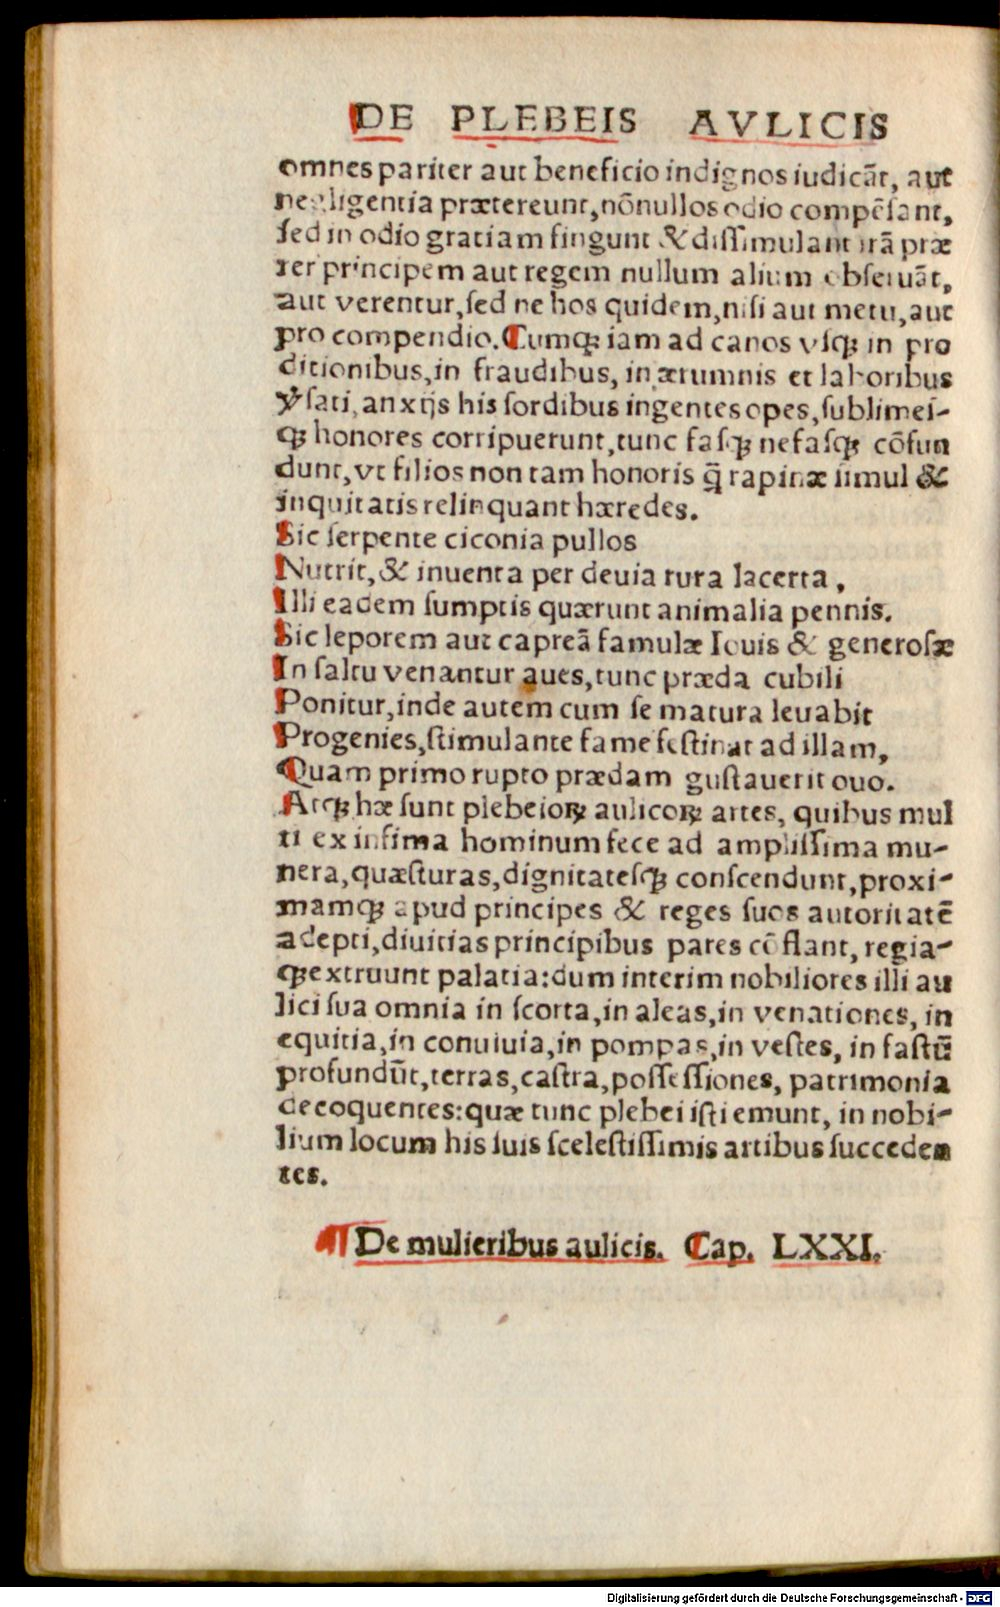 DE PLEBEIS AVLICIS
omnes pariter aut beneficio indignos iudicāt, aut
negligentia prætereunt, nōnullos odio compēſant,
ſed in odio gratiam fingunt & diſſimulant irā præ
ter principem aut regem nullum alium obſeruāt,
aut verentur, ſed ne hos quidem, niſi aut metu, aut
pro compendio. Cumqꝫ iam ad canos vſqꝫ in pro
ditionibus, in fraudibus, in ærumnis et laboribus
v̓ſati, anxijs his ſordibus ingentes opes, ſublimeſ-
qꝫ honores corripuerunt, tunc faſqꝫ nefaſqꝫ cōfun
dunt, vt filios non tam honoris q̄ rapinæ ſimul &
inquitatis relinquant hæredes.
Sic ſerpente ciconia pullos
Nutrit, & inuenta per deuia rura lacerta,
Illi eadem ſumptis quærunt animalia pennis.
Sic leporem aut capreā famulæ Iouis & generoſæ
In ſaltu venantur aues, tunc præda cubili
Ponitur, inde autem cum ſe matura leuabit
Progenies, ſtimulante fame feſtinat ad illam,
Quam primo rupto prædam guſtauerit ouo.
Atqꝫ hæ ſunt plebeioꝝ aulicoꝝ artes, quibus mul
ti ex infima hominum fece ad ampliſſima mu-
nera, quæſturas, dignitateſqꝫ conſcendunt, proxi-
mamqꝫ apud principes & reges ſuos autoritatē
adepti, diuitias principibus pares cōflant, regia-
qꝫ extruunt palatia: dum interim nobiliores illi au
lici ſua omnia in ſcorta, in aleas, in venationes, in
equitia, in conuiuia, in pompas, in veſtes, in faſtū
profundūt, terras, caſtra, poſſeſſiones, patrimonia
decoquentes: quæ tunc plebei iſti emunt, in nobi-
lium locum his ſuis ſceleſtiſſimis artibus ſucceden
tes.
¶ De mulieribus aulicis. Cap. LXXI.
Digitalisierung gefördert durch die Deutsche Forschungsgemeinschaft - DFG